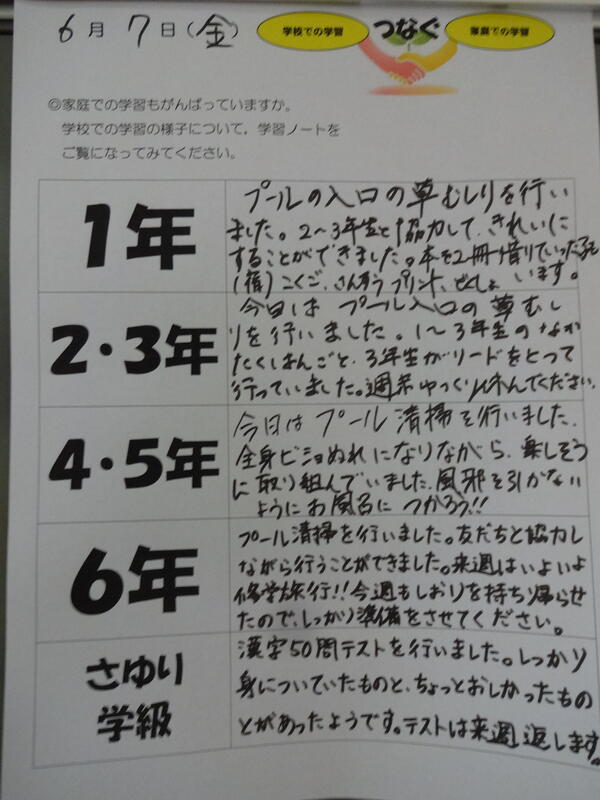 6月7日(金)
学校での学習 つなぐ 家庭での学習
◎家庭での学習もがんばっていますか。
学校での学習の様子について,学習ノートを
ご覧になってみてください。
1年
プールの入口の草むしりを行い
ました。2〜3年生と協力して、きれいに
することができました。本を2冊借りていった
(宿)こくご、さんすうプリント、どくしょ います。
2・3年
今日は プール入口の草むし
りを行いました。1〜3年生の
3年生がリードをとって
行っていました。週末ゆっくり休んでください。
4・5年
今日はプール清掃を行いました。
全身ビショぬれになりながら、楽しそう
に取り組んでいました。風邪を引かない
ようにお風呂につかろう!!
6年
プール清掃を行いました。友だちと協力し
ながら行うことができました。来週はいよいよ
修学旅行!!今週もしおりを持ち帰らせ
たので、しっかり準備をさせてください。
さゆり
学級
漢字50問テストを行いました。しっかり
身についていたものと、ちょっとおしかったもの
とがあったようです。テストは来週返します。